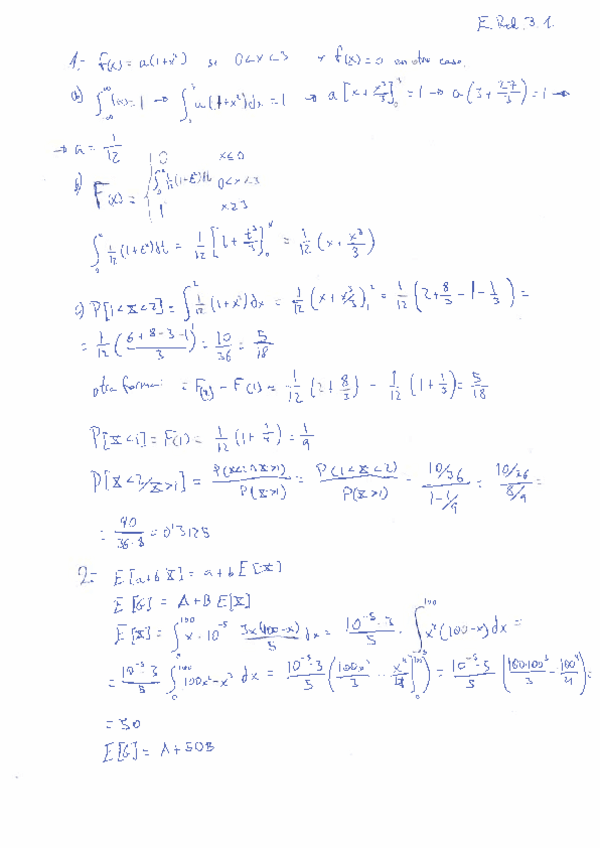 E. Rel. 3.1.
1.- f(x) = a(1+x²) si 0<x<3 y f(x)=0 en otro caso.
a) ∫_{-∞}^{∞} f(x)=1 → ∫_0^3 a(1+x²)dx = 1 → a[x + x³/3]_0^3 = 1 → a(3 + 27/3) = 1 →
→ a = 1/12
b) F(x) = { 0 x≤0
∫_0^x 1/12 (1+t²)dt 0<x<3
1 x≥3
∫_0^x 1/12 (1+t²)dt = 1/12 [t + t³/3]_0^x = 1/12 (x + x³/3)
c) P[1<X<2] = ∫_1^2 1/12 (1+x²)dx = 1/12 (x + x³/3)_1^2 = 1/12 (2 + 8/3 - 1 - 1/3) =
= 1/12 ((6+8-3-1)/3) = 10/36 = 5/18
otra forma: = F(2) - F(1) = 1/12 (2 + 8/3) - 1/12 (1 + 1/3) = 5/18
P[X<1] = F(1) = 1/12 (1 + 1/3) = 1/9
P[X<2/X>1] = P(X<2∩X>1)/P(X>1) = P(1<X<2)/P(X>1) = (10/36)/(1-1/9) = (10/36)/(8/9) =
= 90/(36·8) = 0'3125
2.- E[a+bX] = a+bE[X]
E[G] = A+B E[X]
E[X] = ∫_0^100 x·10^-5 3x(100-x)/5 dx = (10^-5·3)/5 · ∫_0^100 x²(100-x)dx =
= (10^-5·3)/5 ∫_0^100 100x²-x³ dx = (10^-5·3)/5 (100x³/3 - x⁴/4]_0^100) = (10^-5·3)/5 (100·100³/3 - 100⁴/4) =
= 50
E[G] = A+50B